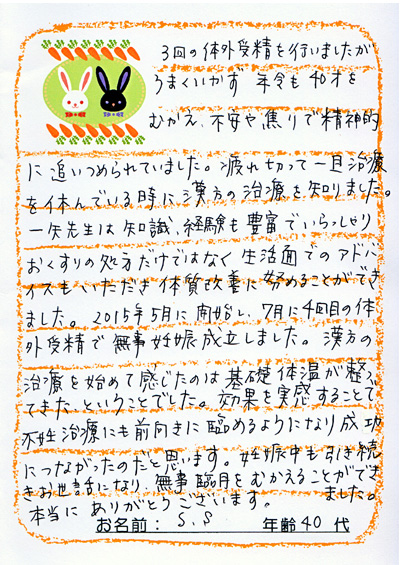 3回の体外受精を行いましたが
うまくいかず 年令も40才を
むかえ、不安や焦りで精神的
に追いつめられていました。疲れ切って一旦治療
を休んでいる時に漢方の治療を知りました。
一矢先生は知識、経験も豊富でいらっしゃり
おくすりの処方だけではなく生活面でのアドバ
イスもいただき体質改善に努めることができ
ました。2015年5月に開始し、7月に4回目の体
外受精で無事妊娠成立しました。漢方の
治療を始めて感じたのは基礎体温が整っ
てきた、ということでした。効果を実感することで
不妊治療にも前向きに臨めるようになり成功
につながったのだと思います。妊娠中も引き続
きお世話になり、無事臨月をむかえることができ
ました。
本当にありがとうございます。
お名前: S.S 年齢40 代